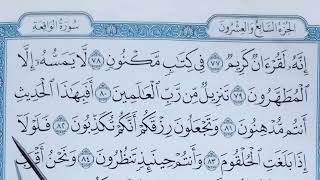 الجزء السابع والعشرون
سورة الواقعة
إِنَّهُۥ لَقُرْءَانٌ كَرِيمٌ ٧٧ فِى كِتَٰبٍ مَّكْنُونٍ ٧٨ لَّا يَمَسُّهُۥٓ إِلَّا
ٱلْمُطَهَّرُونَ ٧٩ تَنزِيلٌ مِّن رَّبِّ ٱلْعَٰلَمِينَ ٨٠ أَفَبِهَٰذَا ٱلْحَدِيثِ
أَنتُم مُّدْهِنُونَ ٨١ وَتَجْعَلُونَ رِزْقَكُمْ أَنَّكُمْ تُكَذِّبُونَ ٨٢ فَلَوْلَآ
إِذَا بَلَغَتِ ٱلْحُلْقُومَ ٨٣ وَأَنتُمْ حِينَئِذٍ تَنظُرُونَ ٨٤ وَنَحْنُ أَقْرَبُ